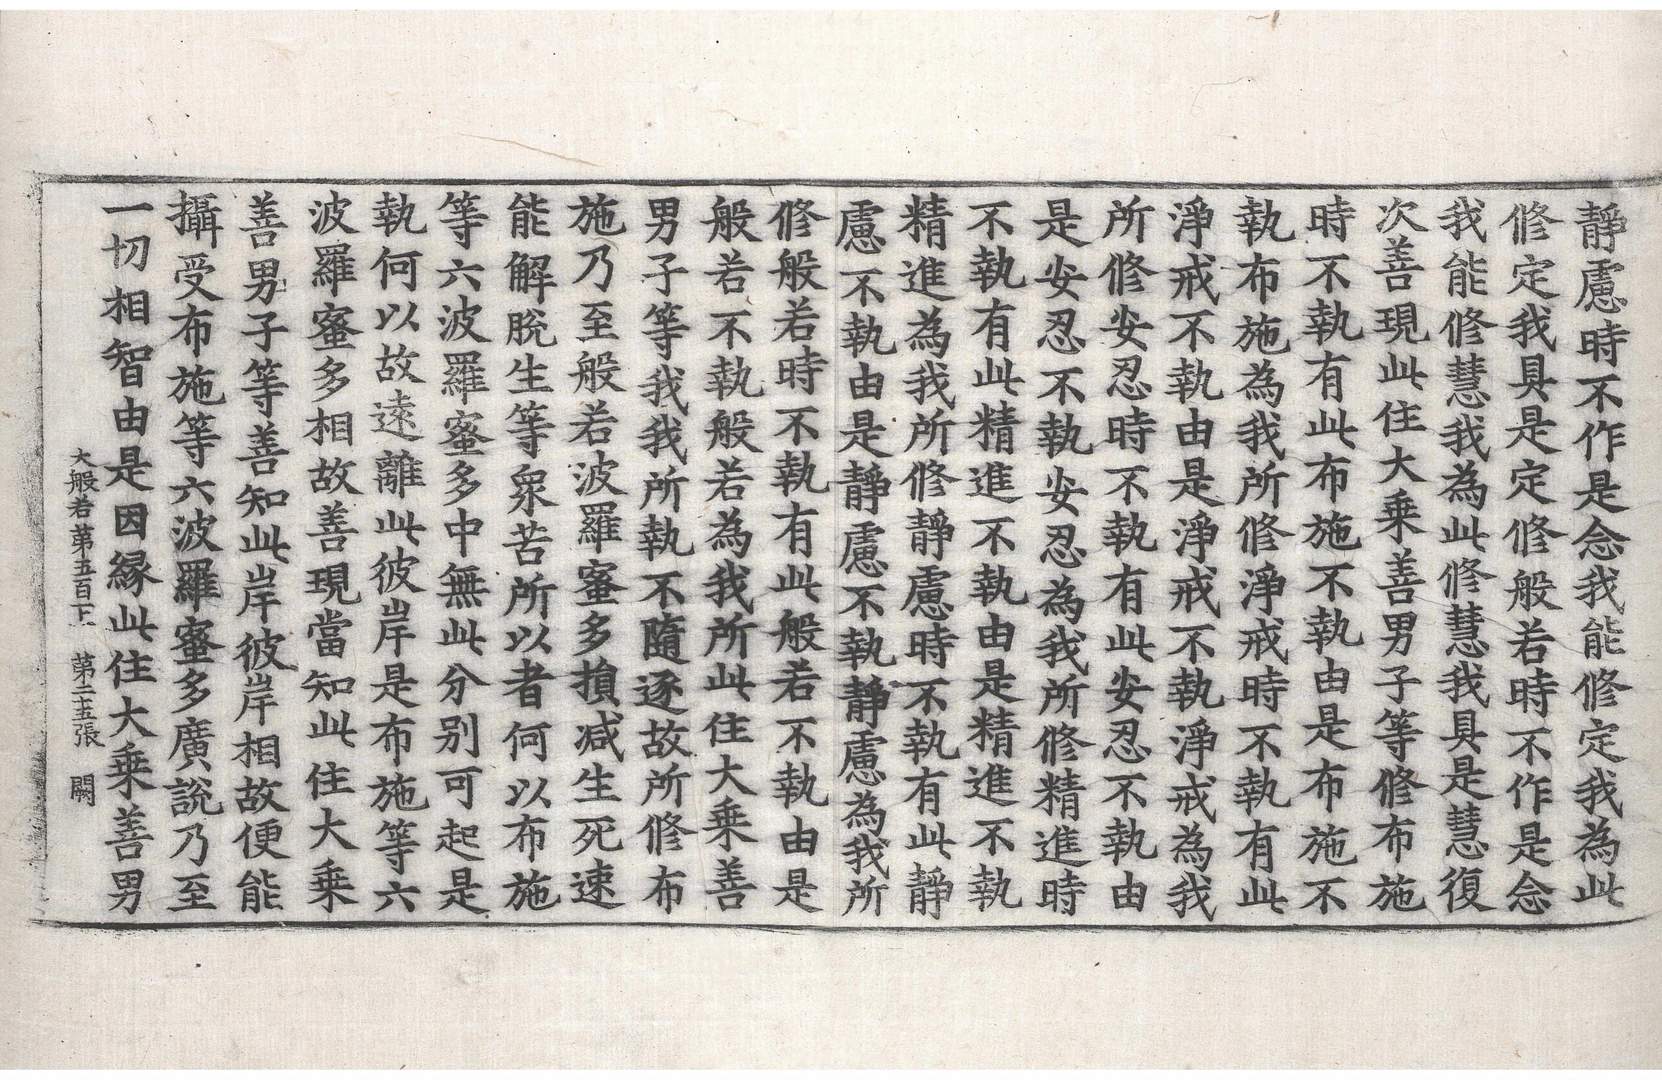 靜慮時不作是念我能修定我為此
修定我具是定修般若時不作是念
我能修慧我為此修慧我具是慧復
次善現此住大乘善男子等修布施
時不執有此布施不執由是布施不
執布施為我所修淨戒時不執有此
淨戒不執由是淨戒不執淨戒為我
所修安忍時不執有此安忍不執由
是安忍不執安忍為我所修精進時
不執有此精進不執由是精進不執
精進為我所修靜慮時不執有此靜
慮不執由是靜慮不執靜慮為我所
修般若時不執有此般若不執由是
般若不執般若為我所此住大乘善
男子等我我所執不隨逐故所修布
施乃至般若波羅蜜多損减生死速
能解脫生等眾苦所以者何以布施
等六波羅蜜多中無此分別可起是
執何以故遠離此彼岸是布施等六
波羅蜜多相故善現當知此住大乘
善男子等善知此岸彼岸相故便能
攝受布施等六波羅蜜多廣說乃至
一切相智由是因緣此住大乘善男
大般若第五百下 第二十五張 闕